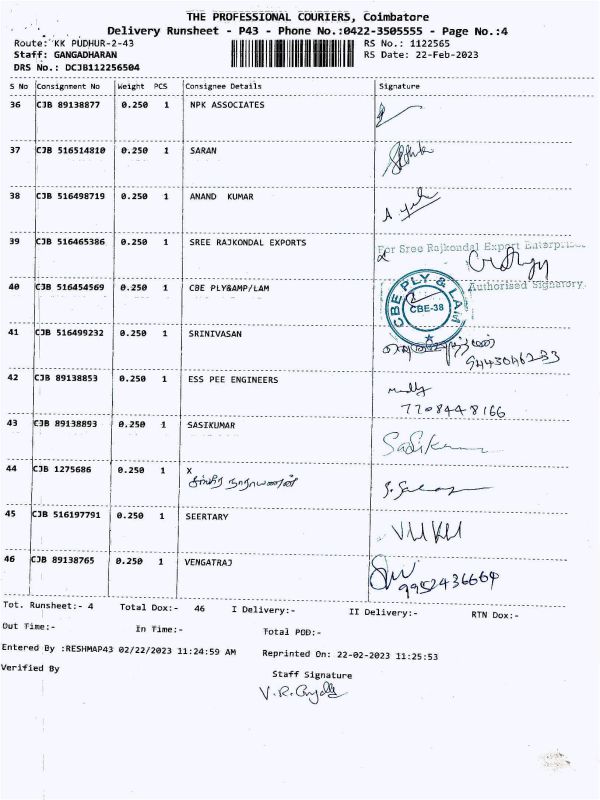 THE PROFESSIONAL COURIERS, Coimbatore
Delivery Runsheet - P43 - Phone No.:0422-3505555 - Page No.:4
Route: KK PUDHUR-2-43 RS No.: 1122565
Staff: GANGADHARAN RS Date: 22-Feb-2023
DRS No.: DCJB112256504
S No Consignment No Weight PCS Consignee Details Signature
36 CJB 89138877 0.250 1 NPK ASSOCIATES
37 CJB 516514810 0.250 1 SARAN
38 CJB 516498719 0.250 1 ANAND KUMAR
39 CJB 516465386 0.250 1 SREE RAJKONDAL EXPORTS For Sree Rajkondal Export Enterprises
40 CJB 516454569 0.250 1 CBE PLY&AMP/LAM Authorised Signatory
CBE PLY & LAM
CBE-38
41 CJB 516499232 0.250 1 SRINIVASAN
9443046233
42 CJB 89138853 0.250 1 ESS PEE ENGINEERS
7708448166
43 CJB 89138893 0.250 1 SASIKUMAR Sasikumar
44 CJB 1275686 0.250 1 X
45 CJB 516197791 0.250 1 SEERTARY
46 CJB 89138765 0.250 1 VENGATRAJ
9952436664
Tot. Runsheet:- 4 Total Dox:- 46 I Delivery:- II Delivery:- RTN Dox:-
Out Time:- In Time:- Total POD:-
Entered By :RESHMAP43 02/22/2023 11:24:59 AM Reprinted On: 22-02-2023 11:25:53
Verified By Staff Signature